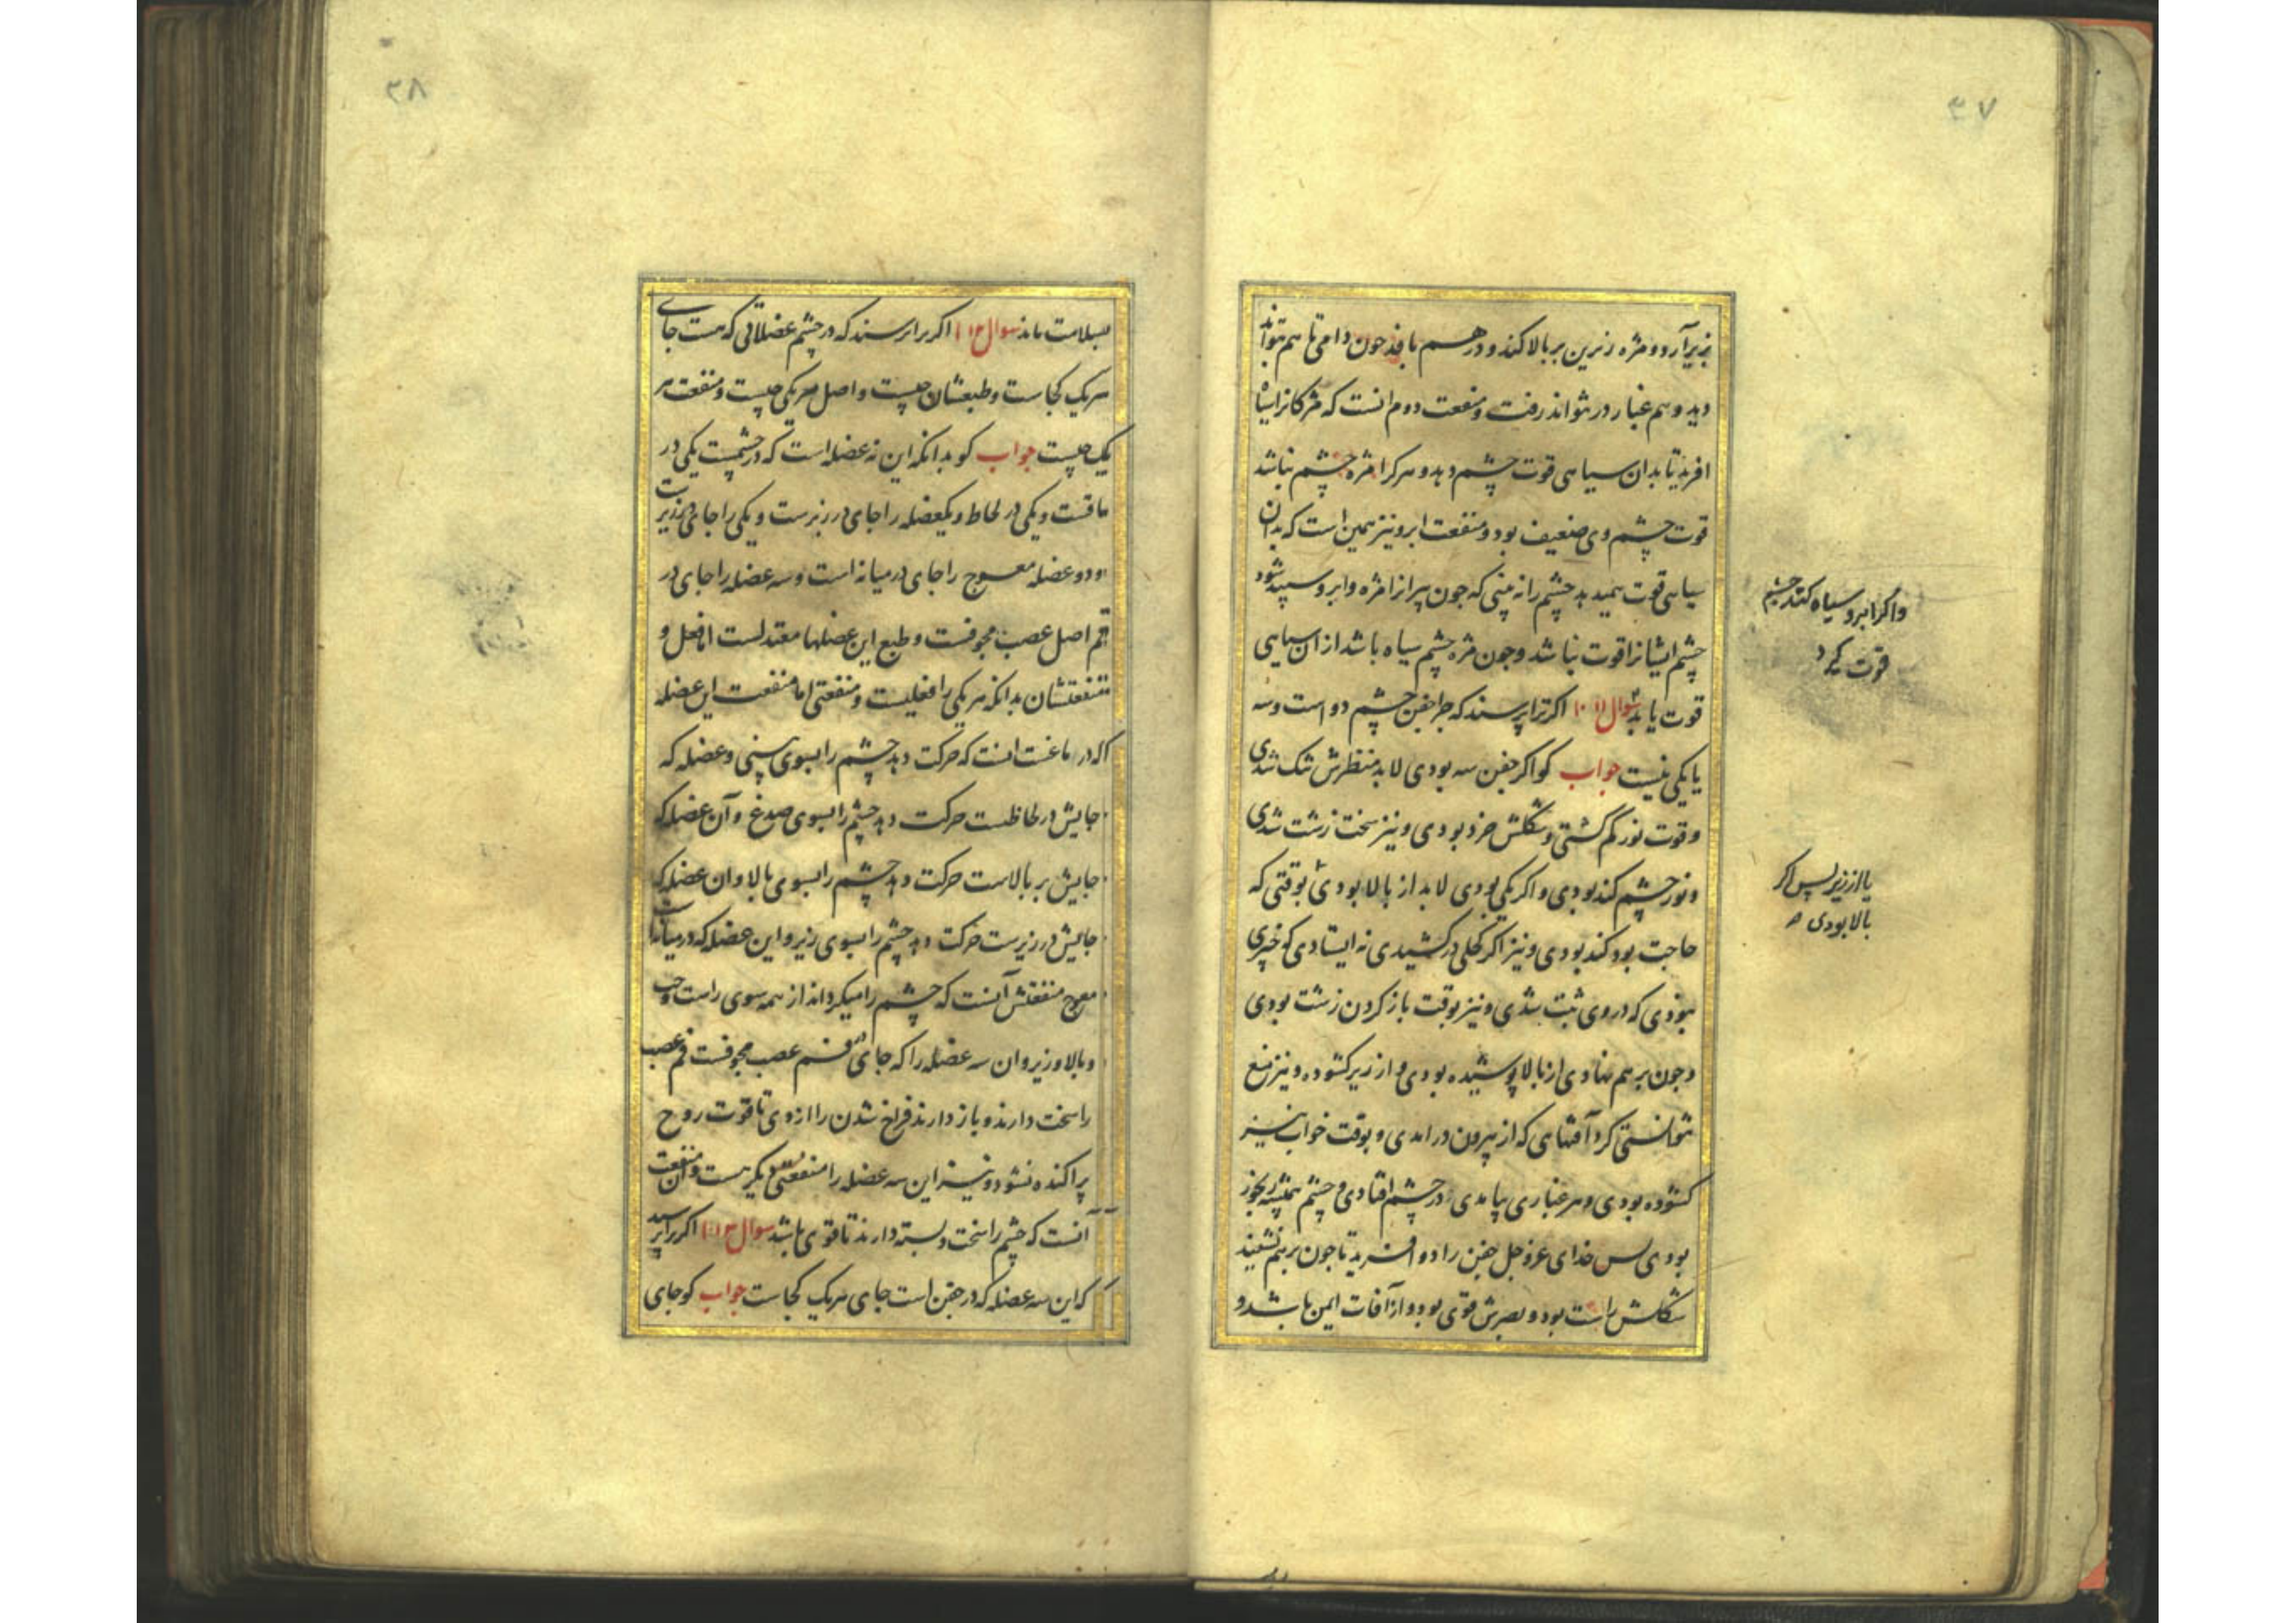 ۳۷
بزیر آرد و مژه زیرین بر بالا کند و در هم بافد چون دامی تا هم تواند
دید و هم غبار در نتواند رفت و منفعت دوم انست که مژکانرا سیاه
افرید تا بدان سیاهی قوت چشم دهد و هرکرا مژه چشم نباشد
قوت چشم وی ضعیف بود و منفعت ابرو نیز همین است که بدان
سیاهی قوت همیدهد چشم را نه بینی که چون پیرانرا مژه و ابرو سپید شود
چشم ایشانرا قوت نباشد و چون مژه چشم سیاه باشد از ان سیاهی
قوت یابد سوال اکر ترا پرسند که چرا جفن چشم دو است و سه
یا یکی نیست جواب کو اکر جفن سه بودی لابد منظرش تنک شدی
و قوت نور کم کشتی و شکلش خرد بودی و نیز سخت زشت شدی
و نور چشم کند بودی و اکر یکی بودی لابد از بالا بودی بوقتی که
حاجت بود کند بودی و نیز اکر کحلی در کشیدی نه ایستادی که چیزی
نبودی که در وی ثبت شدی و نیز بوقت باز کردن زشت بودی
و چون بر هم نهادی از بالا پوشیده بودی و از زیر کشوده و نیز منع
نتوانستی کرد آفتهایی که از بیرون در امدی و بوقت خواب نیز
کشوده بودی و هر غباری بیامدی در چشم افتادی و چشم همیشه رنجور
بودی پس خدای عزوجل جفن را دو افرید تا چون بر هم نشیند
شکلش راست بود و بصرش قوی بود و از آفات ایمن باشد و
واکر ابرو سیاه کنند چشم
قوت کیرد
یا از زیر پس اکر
بالا بودی
۳۸
بسلامت ماند سوال اکر ترا پرسند که در چشم عضلاتی که هست جای
هریک کجاست و طبعشان چیست و اصل هریکی چیست و منفعت هر
یک چیست جواب کو بدانکه این نه عضله است که در چشمست یکی در
ماقست و یکی در لحاظ و یکعضله را جای در زبرست و یکی را جای در زیرست
و دو عضله معوج را جای در میانه است و سه عضله را جای در
فم اصل عصب مجوفست و طبع این عضلها معتدلست اما فعل و
منفعتشان بدانکه هریکی را فعلیست و منفعتی اما منفعت این عضله
که در ماقست انست که حرکت دهد چشم را بسوی بینی و عضله که
جایش در لحاظست حرکت دهد چشم را بسوی صدغ و آن عضله که
جایش بر بالاست حرکت دهد چشم را بسوی بالا و ان عضله که
جایش در زیرست حرکت دهد چشم را بسوی زیر و این عضله که در میانه است
معوج منفعتش آنست که چشم را میکرداند از همه سوی راست و چپ
و بالا و زیر و ان سه عضله را که جای در فم عصب مجوفست فم عصب
را سخت دارند و باز دارند فراخ شدن را از وی تا قوت روح
پراکنده نشود و نیز این سه عضله را منفعتی دیکر هست و ان منفعت
آنست که چشم را سخت و بسته دارند تا قوی باشد سوال اکر ترا پرسند
که این سه عضله که در جفن است جای هریک کجاست جواب کو جای